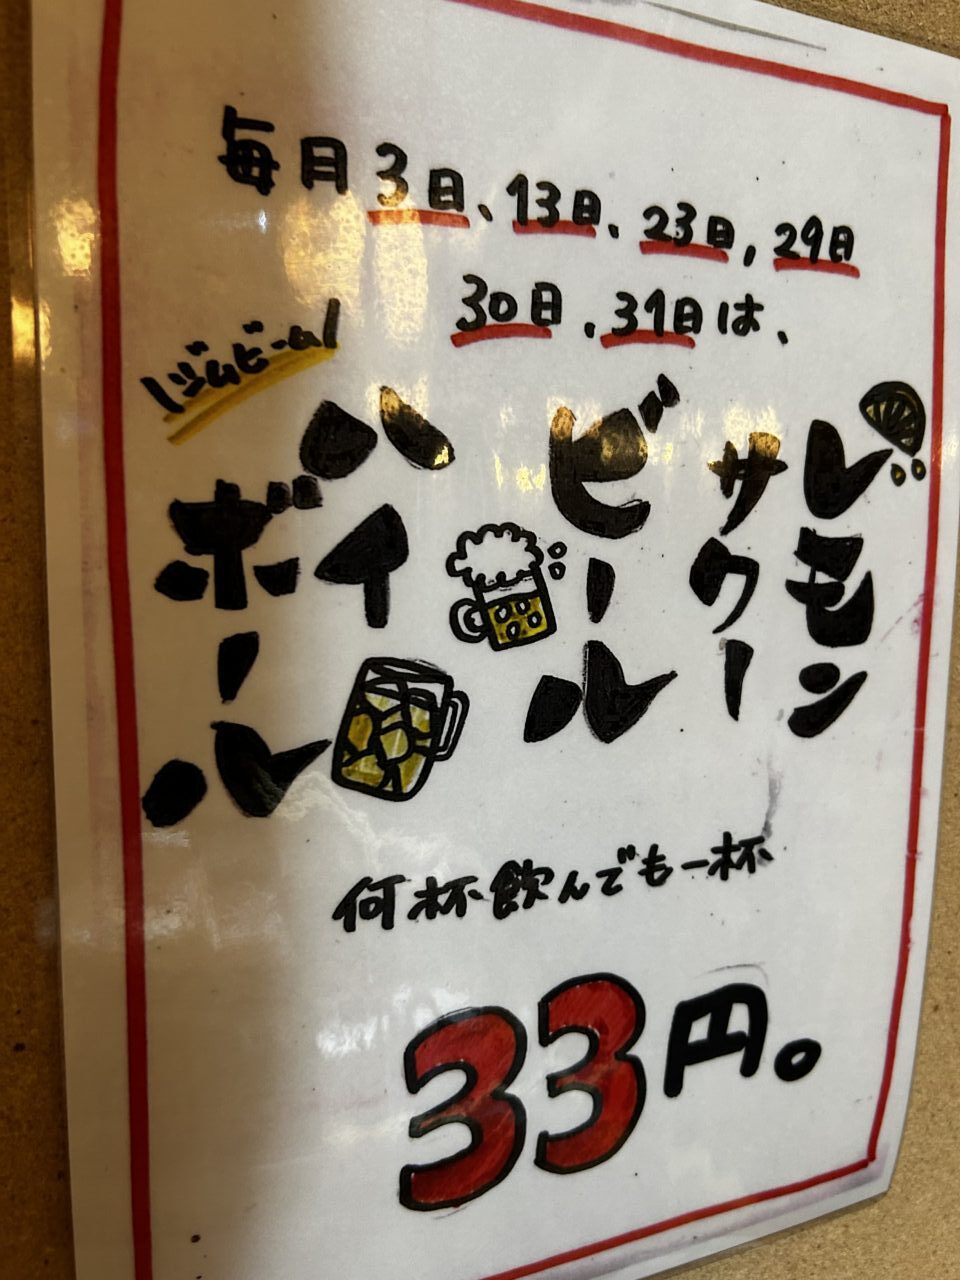 毎月3日、13日、23日、29日
30日、31日は、
レモン
サワー
ビール
\ジムビーム/
ハイ
ボール
何杯飲んでも一杯
33円。